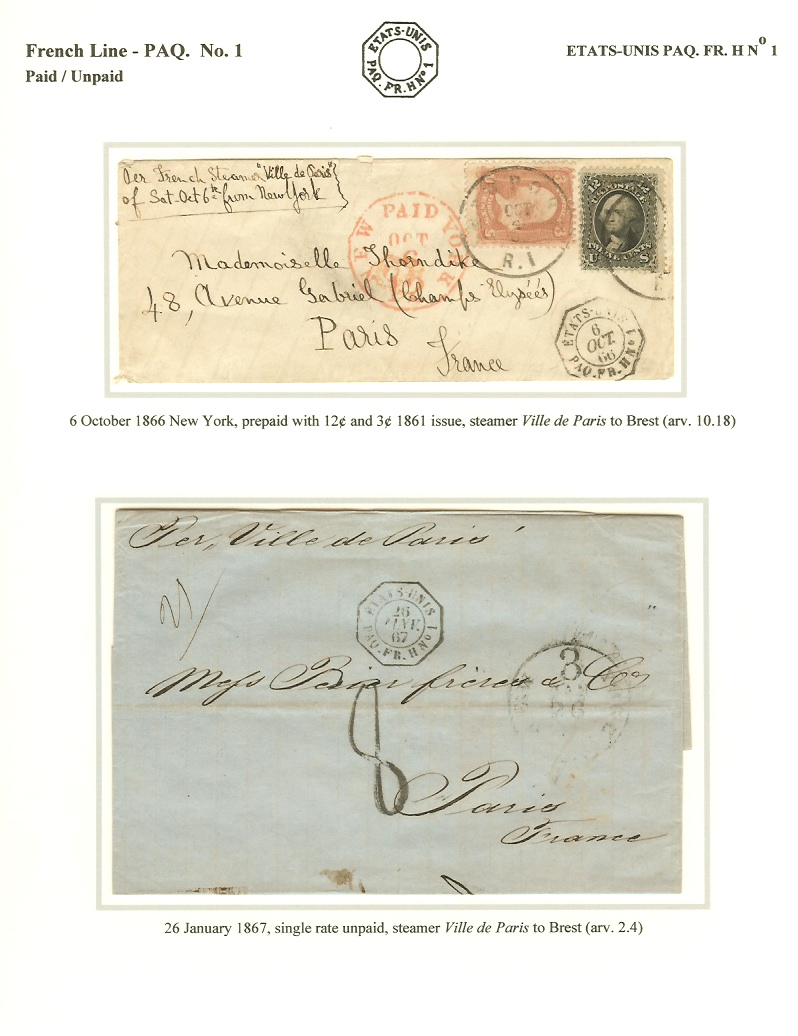 French Line - PAQ. No. 1
Paid / Unpaid
ETATS-UNIS
PAQ. FR. H Nº 1
ETATS-UNIS PAQ. FR. H Nº 1
Per French Steamer "Ville de Paris"
of Sat. Oct 6th from New York
NEW YORK
PAID
OCT
6
OCT
R. I
12 12
U.S. POSTAGE
U S
Mademoiselle Thorndike
48, Avenue Gabriel (Champs Elysées)
Paris
France
ETATS-UNIS
6
OCT.
66
PAQ. FR. H Nº 1
6 October 1866 New York, prepaid with 12¢ and 3¢ 1861 issue, steamer Ville de Paris to Brest (arv. 10.18)
Per "Ville de Paris"
ETATS-UNIS
26
JANV.
67
PAQ. FR. H Nº 1
3
26
frères & Co
8
Paris
France
26 January 1867, single rate unpaid, steamer Ville de Paris to Brest (arv. 2.4)